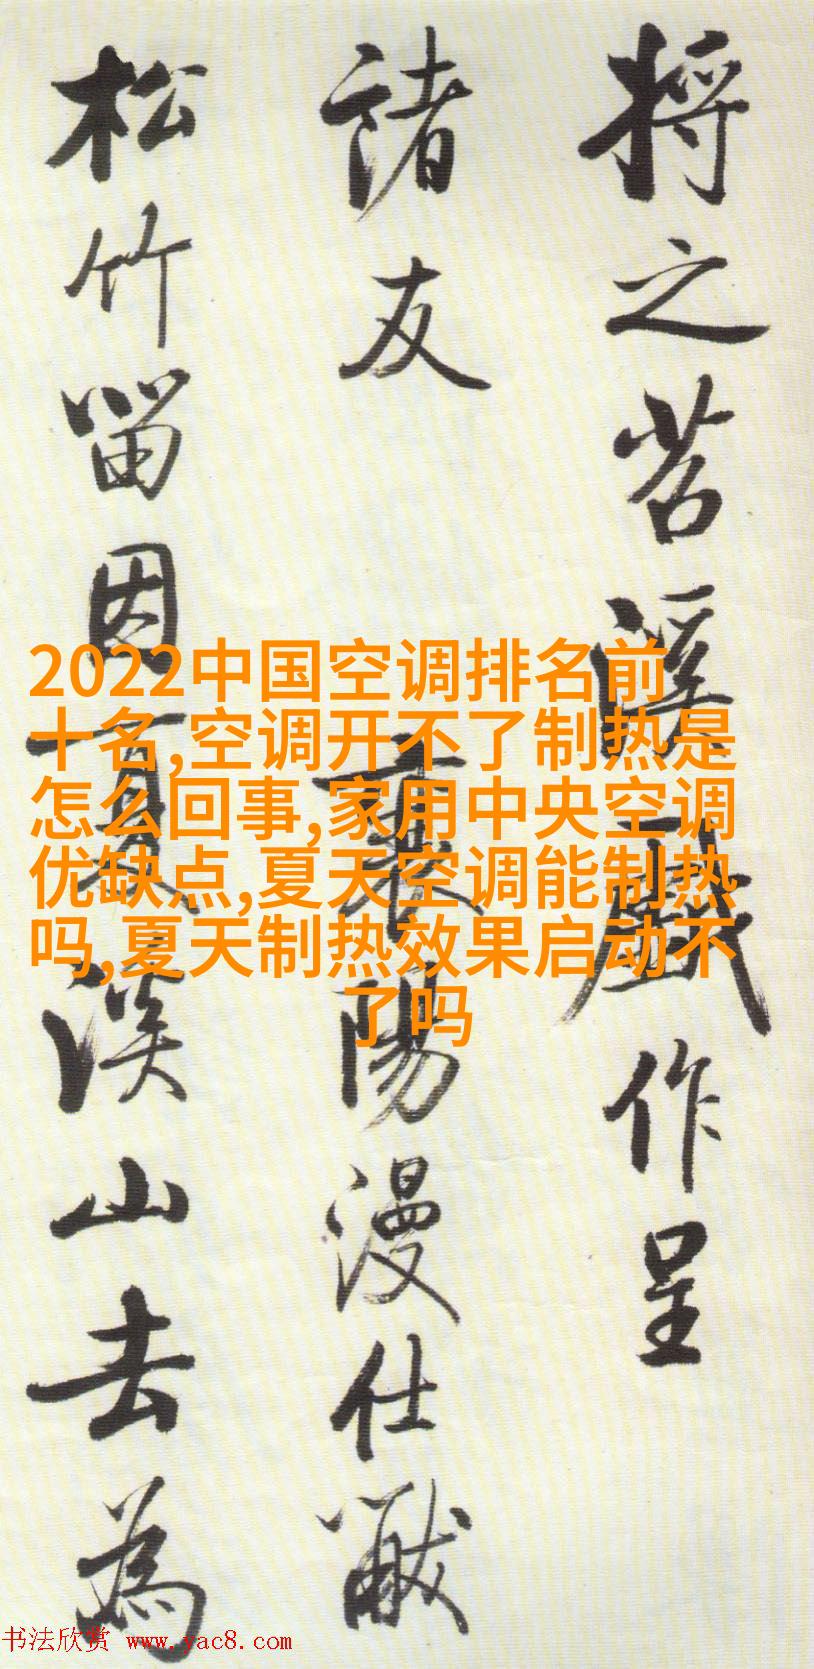 将之苕溪戲作呈
諸友
襄陽漫仕黻
松竹留因夏溪山去為
2022中国空调排名前
十名,空调开不了制热是
怎么回事,家用中央空调
优缺点,夏天空调能制热
吗,夏天制热效果启动不
了吗
书法欣赏 www.yac8.com